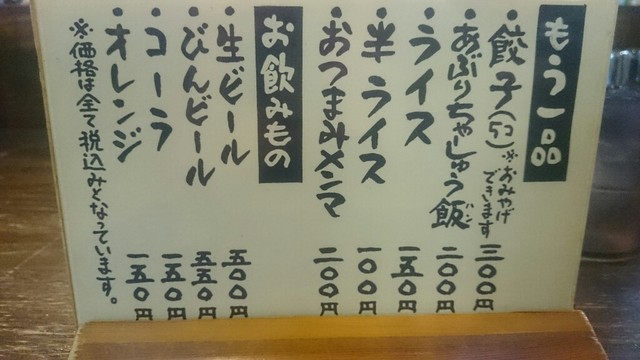 もう一品
・餃子(5コ) ※おみやげできます 三〇〇円
・あぶりちゃーしゅう飯 ハン 二〇〇円
・ライス 一五〇円
・半ライス 一〇〇円
・おつまみメンマ 二〇〇円
お飲みもの
・生ビール 五〇〇円
・びんビール 五五〇円
・コーラ 一五〇円
・オレンジ 一五〇円
※価格は全て税込みとなっています。